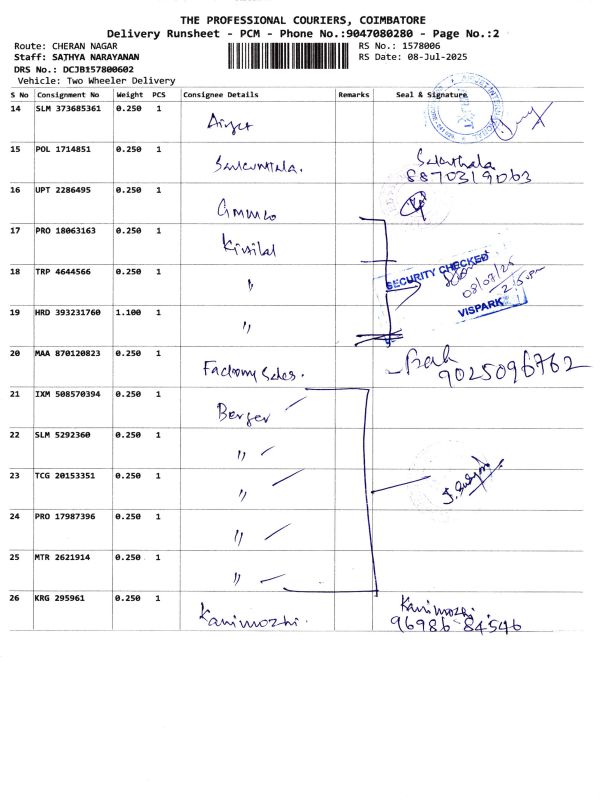 THE PROFESSIONAL COURIERS, COIMBATORE
Delivery Runsheet - PCM - Phone No.:9047080280 - Page No.:2
Route: CHERAN NAGAR
RS No.: 1578006
Staff: SATHYA NARAYANAN
RS Date: 08-Jul-2025
DRS No.: DCJB157800602
Vehicle: Two Wheeler Delivery
S No Consignment No Weight PCS Consignee Details Remarks Seal & Signature
14 SLM 373685361 0.250 1
15 POL 1714851 0.250 1
8870319063
16 UPT 2286495 0.250 1
17 PRO 18063163 0.250 1
Kivilal
18 TRP 4644566 0.250 1 "
SECURITY CHECKED
08/07/25
VISPARK
19 HRD 393231760 1.100 1 "
20 MAA 870120823 0.250 1
Factory Sales.
9025096762
21 IXM 508570394 0.250 1
Berger
22 SLM 5292360 0.250 1 "
23 TCG 20153351 0.250 1 "
24 PRO 17987396 0.250 1 "
25 MTR 2621914 0.250 1 "
26 KRG 295961 0.250 1
Kanimozhi. Kanimozhi.
96986-84546